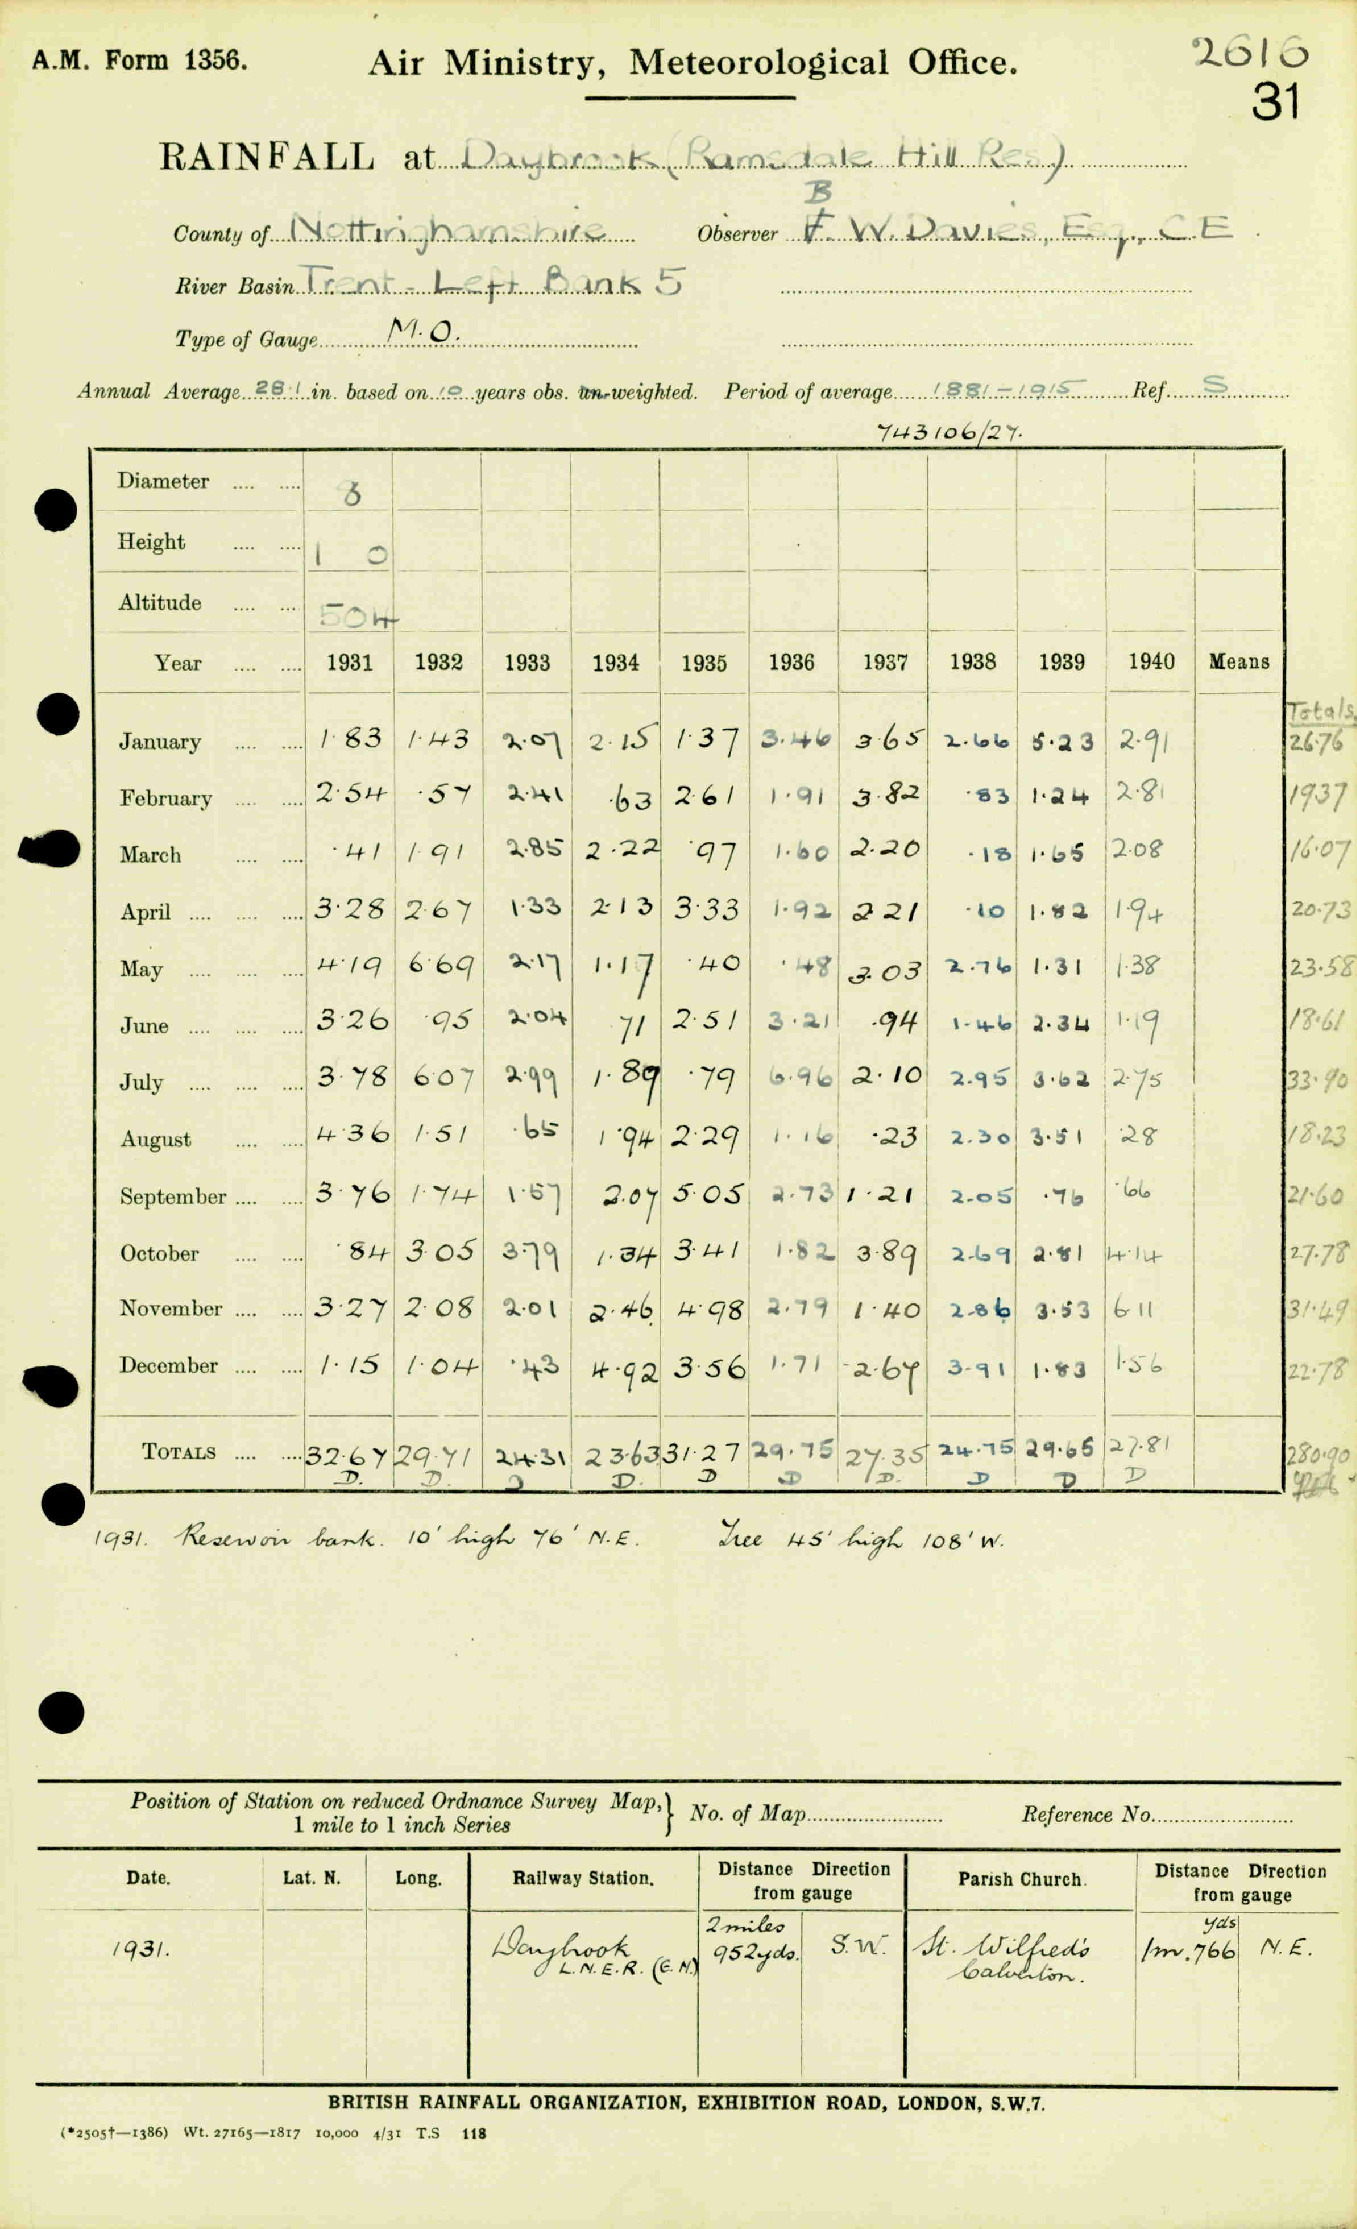 A.M. Form 1356. Air Ministry, Meteorological Office. 2616
31
RAINFALL at Daybrook (Ramsdale Hill Res.)
B
County of Nottinghamshire Observer F. W. Davies, Esq., C.E.
River Basin Trent - Left Bank 5
Type of Gauge M.O.
Annual Average 28.1 in. based on 10 years obs. un-weighted. Period of average 1881-1915 Ref. S
743106/27.
Diameter 8
Height 1 0
Altitude 504
Year 1931 1932 1933 1934 1935 1936 1937 1938 1939 1940 Means
Totals
January 1.83 1.43 2.07 2.15 1.37 3.46 3.65 2.66 5.23 2.91 26.76
February 2.54 .57 2.41 .63 2.61 1.91 3.82 .83 1.24 2.81 1937
March .41 1.91 2.85 2.22 .97 1.60 2.20 .18 1.65 2.08 16.07
April 3.28 2.67 1.33 2.13 3.33 1.92 2 21 .10 1.82 1.94 20.73
May 4.19 6.69 2.17 1.17 .40 .48 3.03 2.76 1.31 1.38 23.58
June 3.26 .95 2.04 71 2.51 3.21 .94 1.46 2.34 1.19 18.61
July 3.78 6.07 2.99 1.89 .79 6.96 2.10 2.95 3.62 2.75 33.90
August 4.36 1.51 .65 1.94 2.29 1.16 .23 2.30 3.51 .28 18.23
September 3.76 1.74 1.57 2.07 5.05 2.73 1.21 2.05 .76 .66 21.60
October .84 3.05 3.79 1.34 3.41 1.82 3.89 2.69 2.81 4.14 27.78
November 3.27 2.08 2.01 2.46 4.98 2.79 1.40 2.86 3.53 6.11 31.49
December 1.15 1.04 .43 4.92 3.56 1.71 2.67 3.91 1.83 1.56 22.78
TOTALS 32.67 29.71 24.31 23.63 31.27 29.75 27.35 24.75 29.65 27.81 280.90
D. D. D D. D D D. D D D
1931. Reservoir bank. 10' high 76' N.E. Tree 45' high 108' W.
Position of Station on reduced Ordnance Survey Map, } No. of Map Reference No.
1 mile to 1 inch Series
Date. Lat. N. Long. Railway Station. Distance Direction from gauge Parish Church. Distance Direction from gauge
1931. Daybrook L.N.E.R. (G.N.) 2 miles 952 yds. S.W. St. Wilfred's Calverton. 1m. 766 yds N.E.
BRITISH RAINFALL ORGANIZATION, EXHIBITION ROAD, LONDON, S.W.7.
(*2505†—1386) Wt. 27165—1817 10,000 4/31 T.S 118